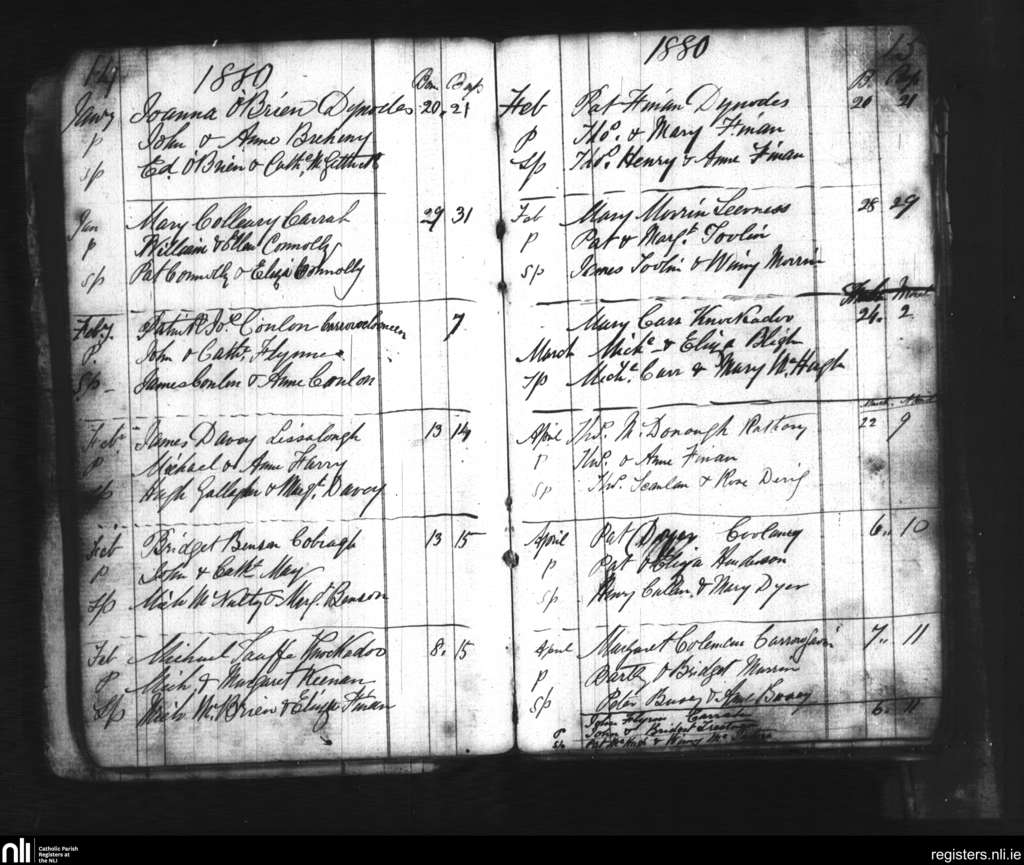 1880
Born Bap
Jany Joanna O'Brien Dynodes 20. 21
p John & Anne Breheny
sp Ed. O'Brien & Cath.
Jan Mary Colleary Carrah 29 31
p William & Ellen Connolly
sp Pat Connolly & Eliza Connolly
Feby. Patrick Jos. Conlon 7
P John & Cath. Flynn
Sp James Conlon & Anne Conlon
Feb. James Davey Lissalough 13 14
P Michael & Anne Harry
sp Hugh Gallagher & Margt. Davey
Feb Bridget Benson Cobragh 13 15
p John & Cath. May
sp Mich McNulty & Margt. Benson
Feb Michael Taaffe Knockadoo 8. 15
P Mich. & Margaret Keenan
Sp Mich McBrien & Eliza Finan
1880 15
B. Bap
Feb Pat Finan Dynodes 20 21
P Thos. & Mary Finan
Sp Thos. Henry & Anne Finan
Feb Mary Morrin Leevness 28 29
P Pat & Margt. Toolin
Sp James Toolin & Winny Morrin
Mary Carr Knockadoo 24. 2
March Michl. & Eliza Bligh
sp Michl. Carr & Mary McHugh
April Thos. McDonough Rathory 22 9
P Thos. & Anne Finan
sp Thos. Scanlan & Rose
April Pat Dyer Coolaney 6.. 10
p Pat & Eliza Henderson
sp Henry Cullen & Mary Dyer
April Margaret Coleman 7.. 11
p Bartly & Bridget Murrin
sp Peter &
John Flynn Carrah 6. 11
P John & Bridget
Sp Pat McHugh & Winny
nli
Catholic Parish
Registers at
the NLI
registers.nli.ie